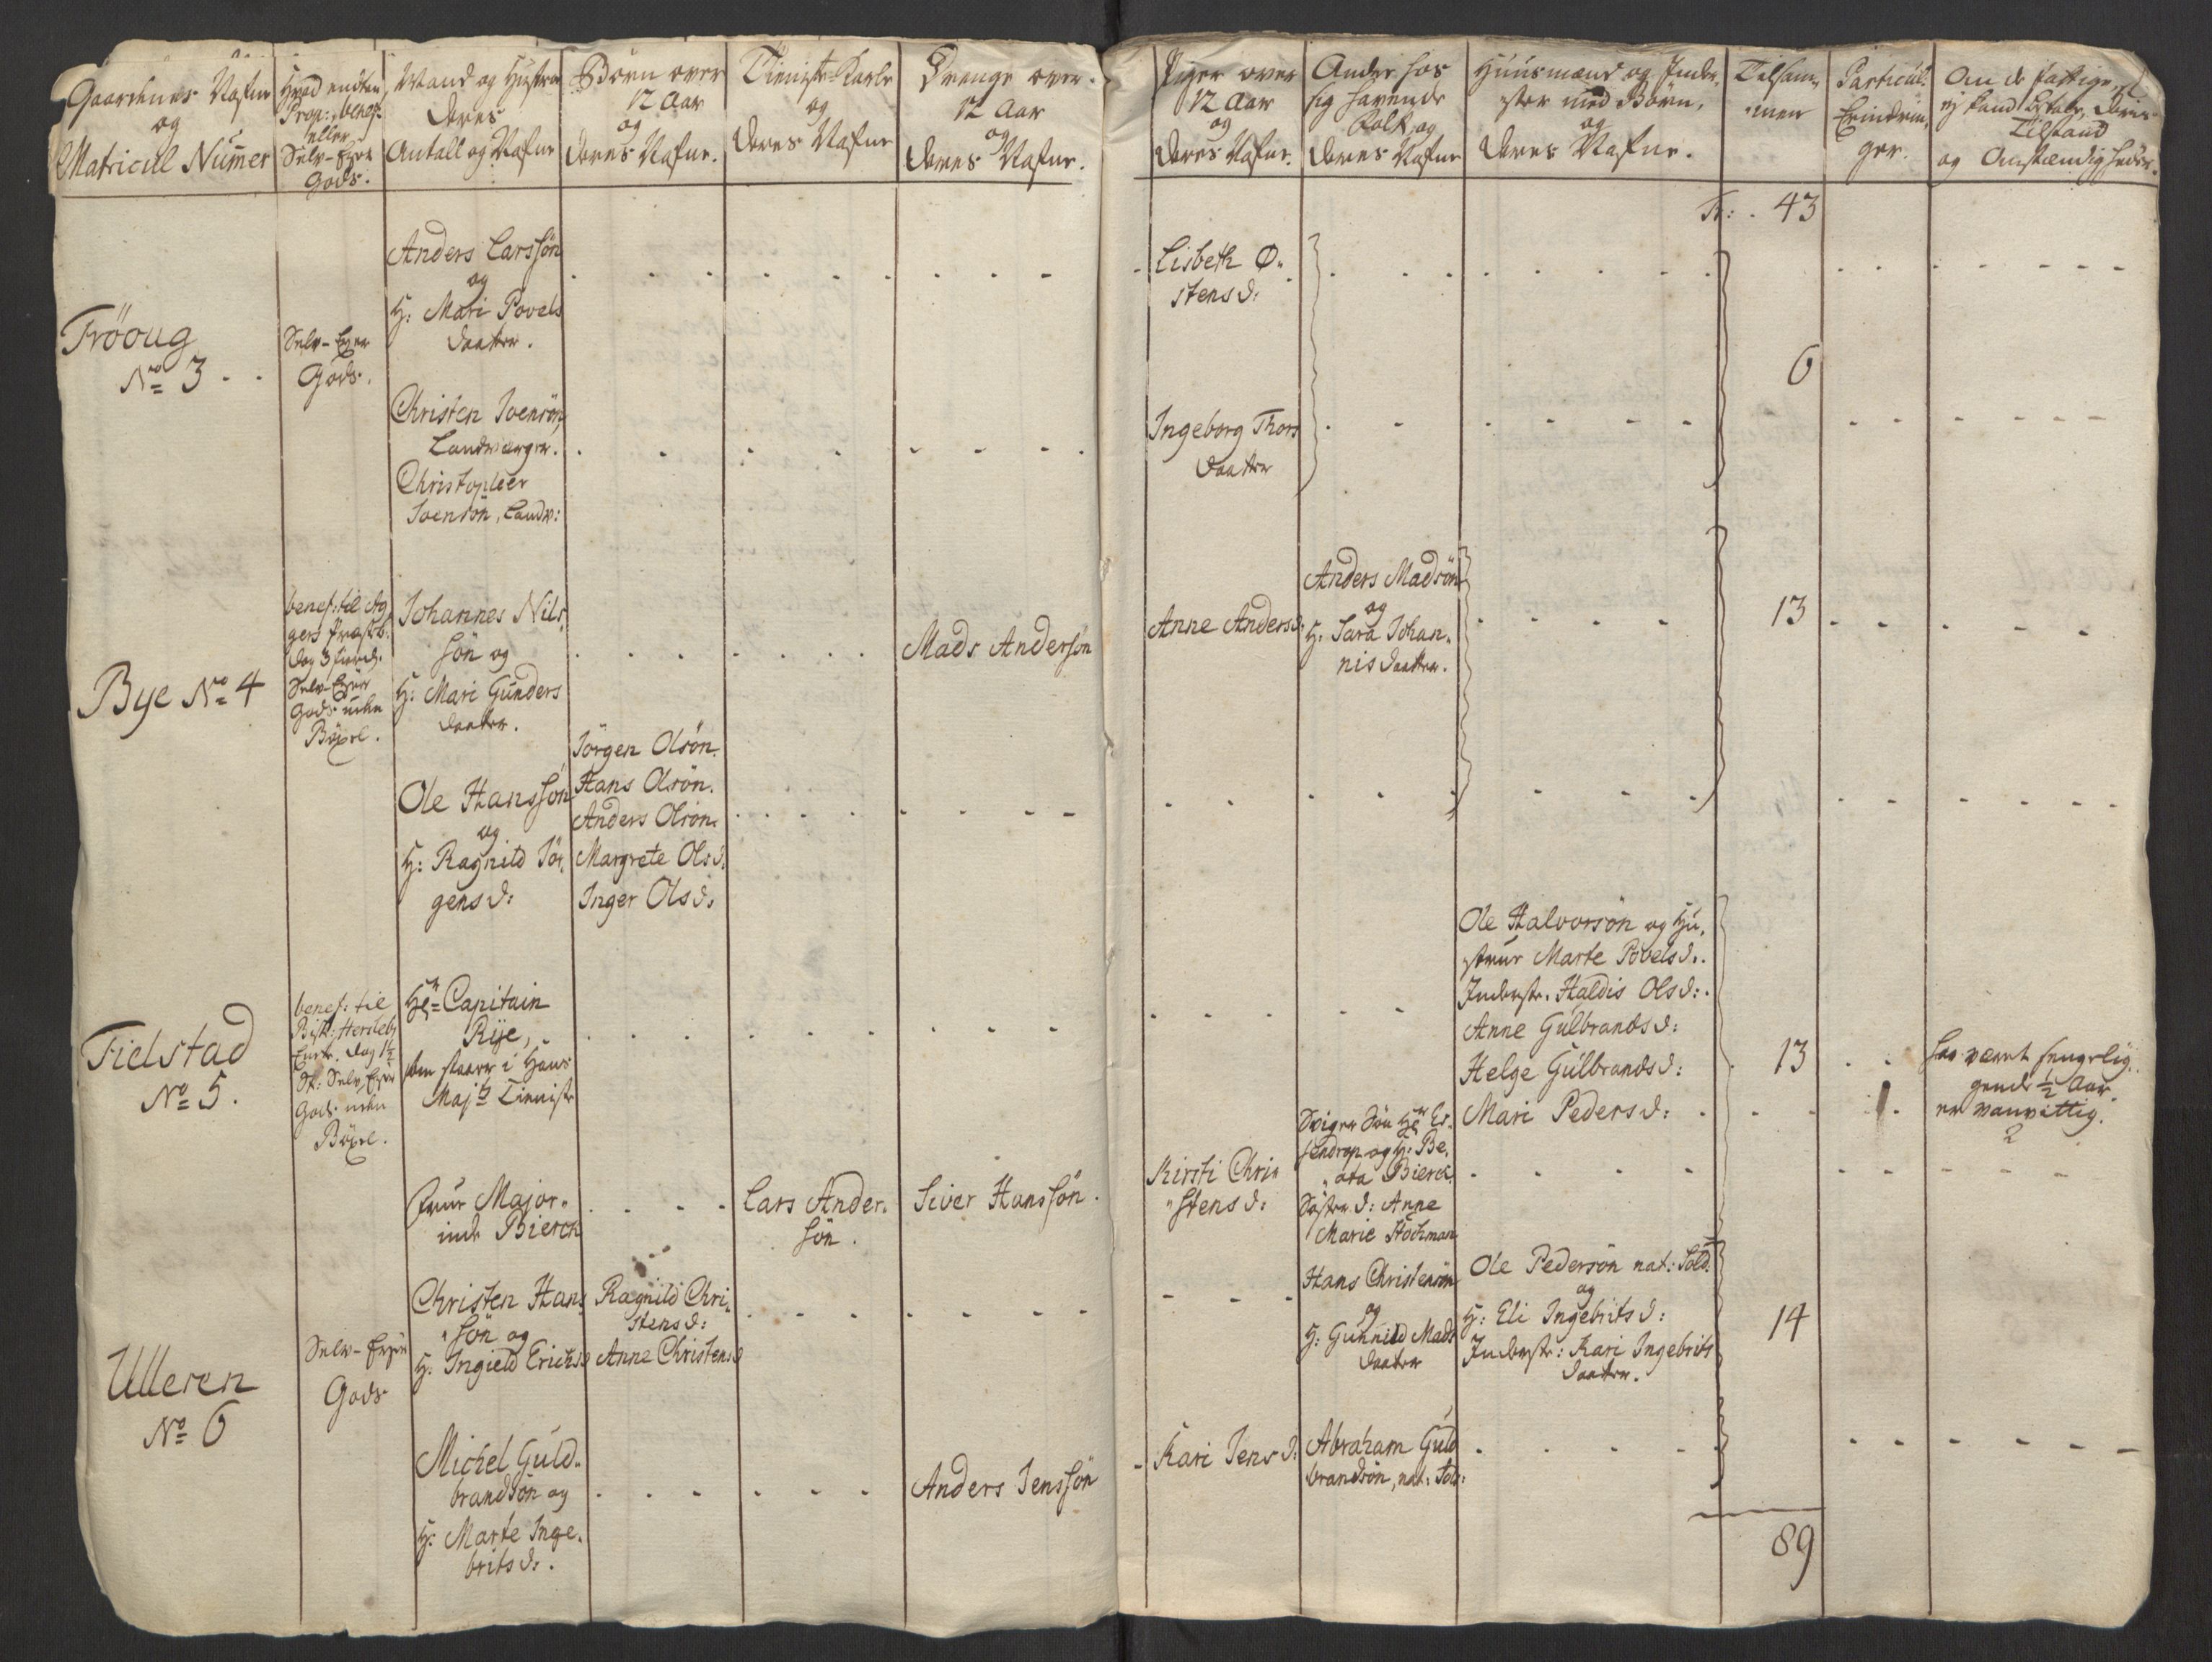 Gaardenes Nafne
og
Matricul Numer
Hvad endten
Prop:, benef:
eller
Selv-Eyer
Gods.
Mand og Hustru
deres
Antall og Nafne
Börn over
12 Aar
og
deres Nafne.
Tieniste-Karle
og
deres Nafne
Drenge over
12 Aar
og
deres Nafne.
Piger over
12 Aar
og
deres Nafne.
Andre hos
sig havende
Folk, og
deres Nafne
Huusmænd og Inder-
ster med Börn,
og
deres Nafne.
Tilsam-
men
Particul:
Erindrin-
ger.
Om de fattige, som
ej kand betale, deres
Tilstand
og Omstændigheder.
Tr: . 43
Tröoug
No 3 . .
Selv-Eyer
Gods.
Anders Larssön
og
H: Mari Povels
daatter.
Lisbeth Ø-
stensd:
6
Christen Svensön,
Landværger.
Christopher
Svensön, Landv:
Ingeborg Thors
daatter
Bye No 4
benef: til Ag
gers Præstb:
dog 3 fierd.
Selv-Eyer
Gods uden
Böxel.
Johannes Nils-
sön og
H: Mari Gunders
daatter.
Mads Andersön
Anne Andersd:
Anders Madsön
og
H: Sara Johan-
nisdaatter.
13
Ole Hanssön
og
H: Ragnild Jör-
gensd:
Jörgen Olsön.
Hans Olsön.
Anders Olsön.
Margrete Olsd:
Inger Olsd:
Fielstad
No 5.
benef: til
Bisk: Hersleb
Enke. dog 1½
Sk: Selv Eyer
Gods uden
Böxel.
Hr Capitain
Rye,
som staaer i Hans
Majts Tieniste
Ole Halvorsön og Hu-
strue Marte Povelsd:.
Inderste. Haldis Olsd:.
Anne Gulbrandsd:
Helge Gulbrandsd:
Mari Pedersd:
13
1.
har været sengelig-
gende ½ Aar
er vanvittig.
2
Frue Major-
inde Bierck
Lars Ander-
sön.
Siver Hanssön.
Kirsti Chri-
stensd:
Sviger Sön Hr Es-
sendrop og H: Be-
ata Bierck
Söster D: Anne
Marie Stockman
Ulleren
No 6
Selv-Eyer
Gods
Christen Hans-
sön og
H: Ingield Ericksd
Ragnild Chri-
stensd:
Anne Christensd
Hans Christensön
og
H: Gunnild Mads
daatter
Ole Pedersön nat: Sold:
og
H: Eli Ingebritsd:
Inderste: Kari Ingebrits
daatter.
14
Michel Guld-
brandsön og
H: Marte Inge-
britsd:.
Anders Jenssön
Kari Jensd:
Abraham Guld
brandsön, nat: Sold:
89